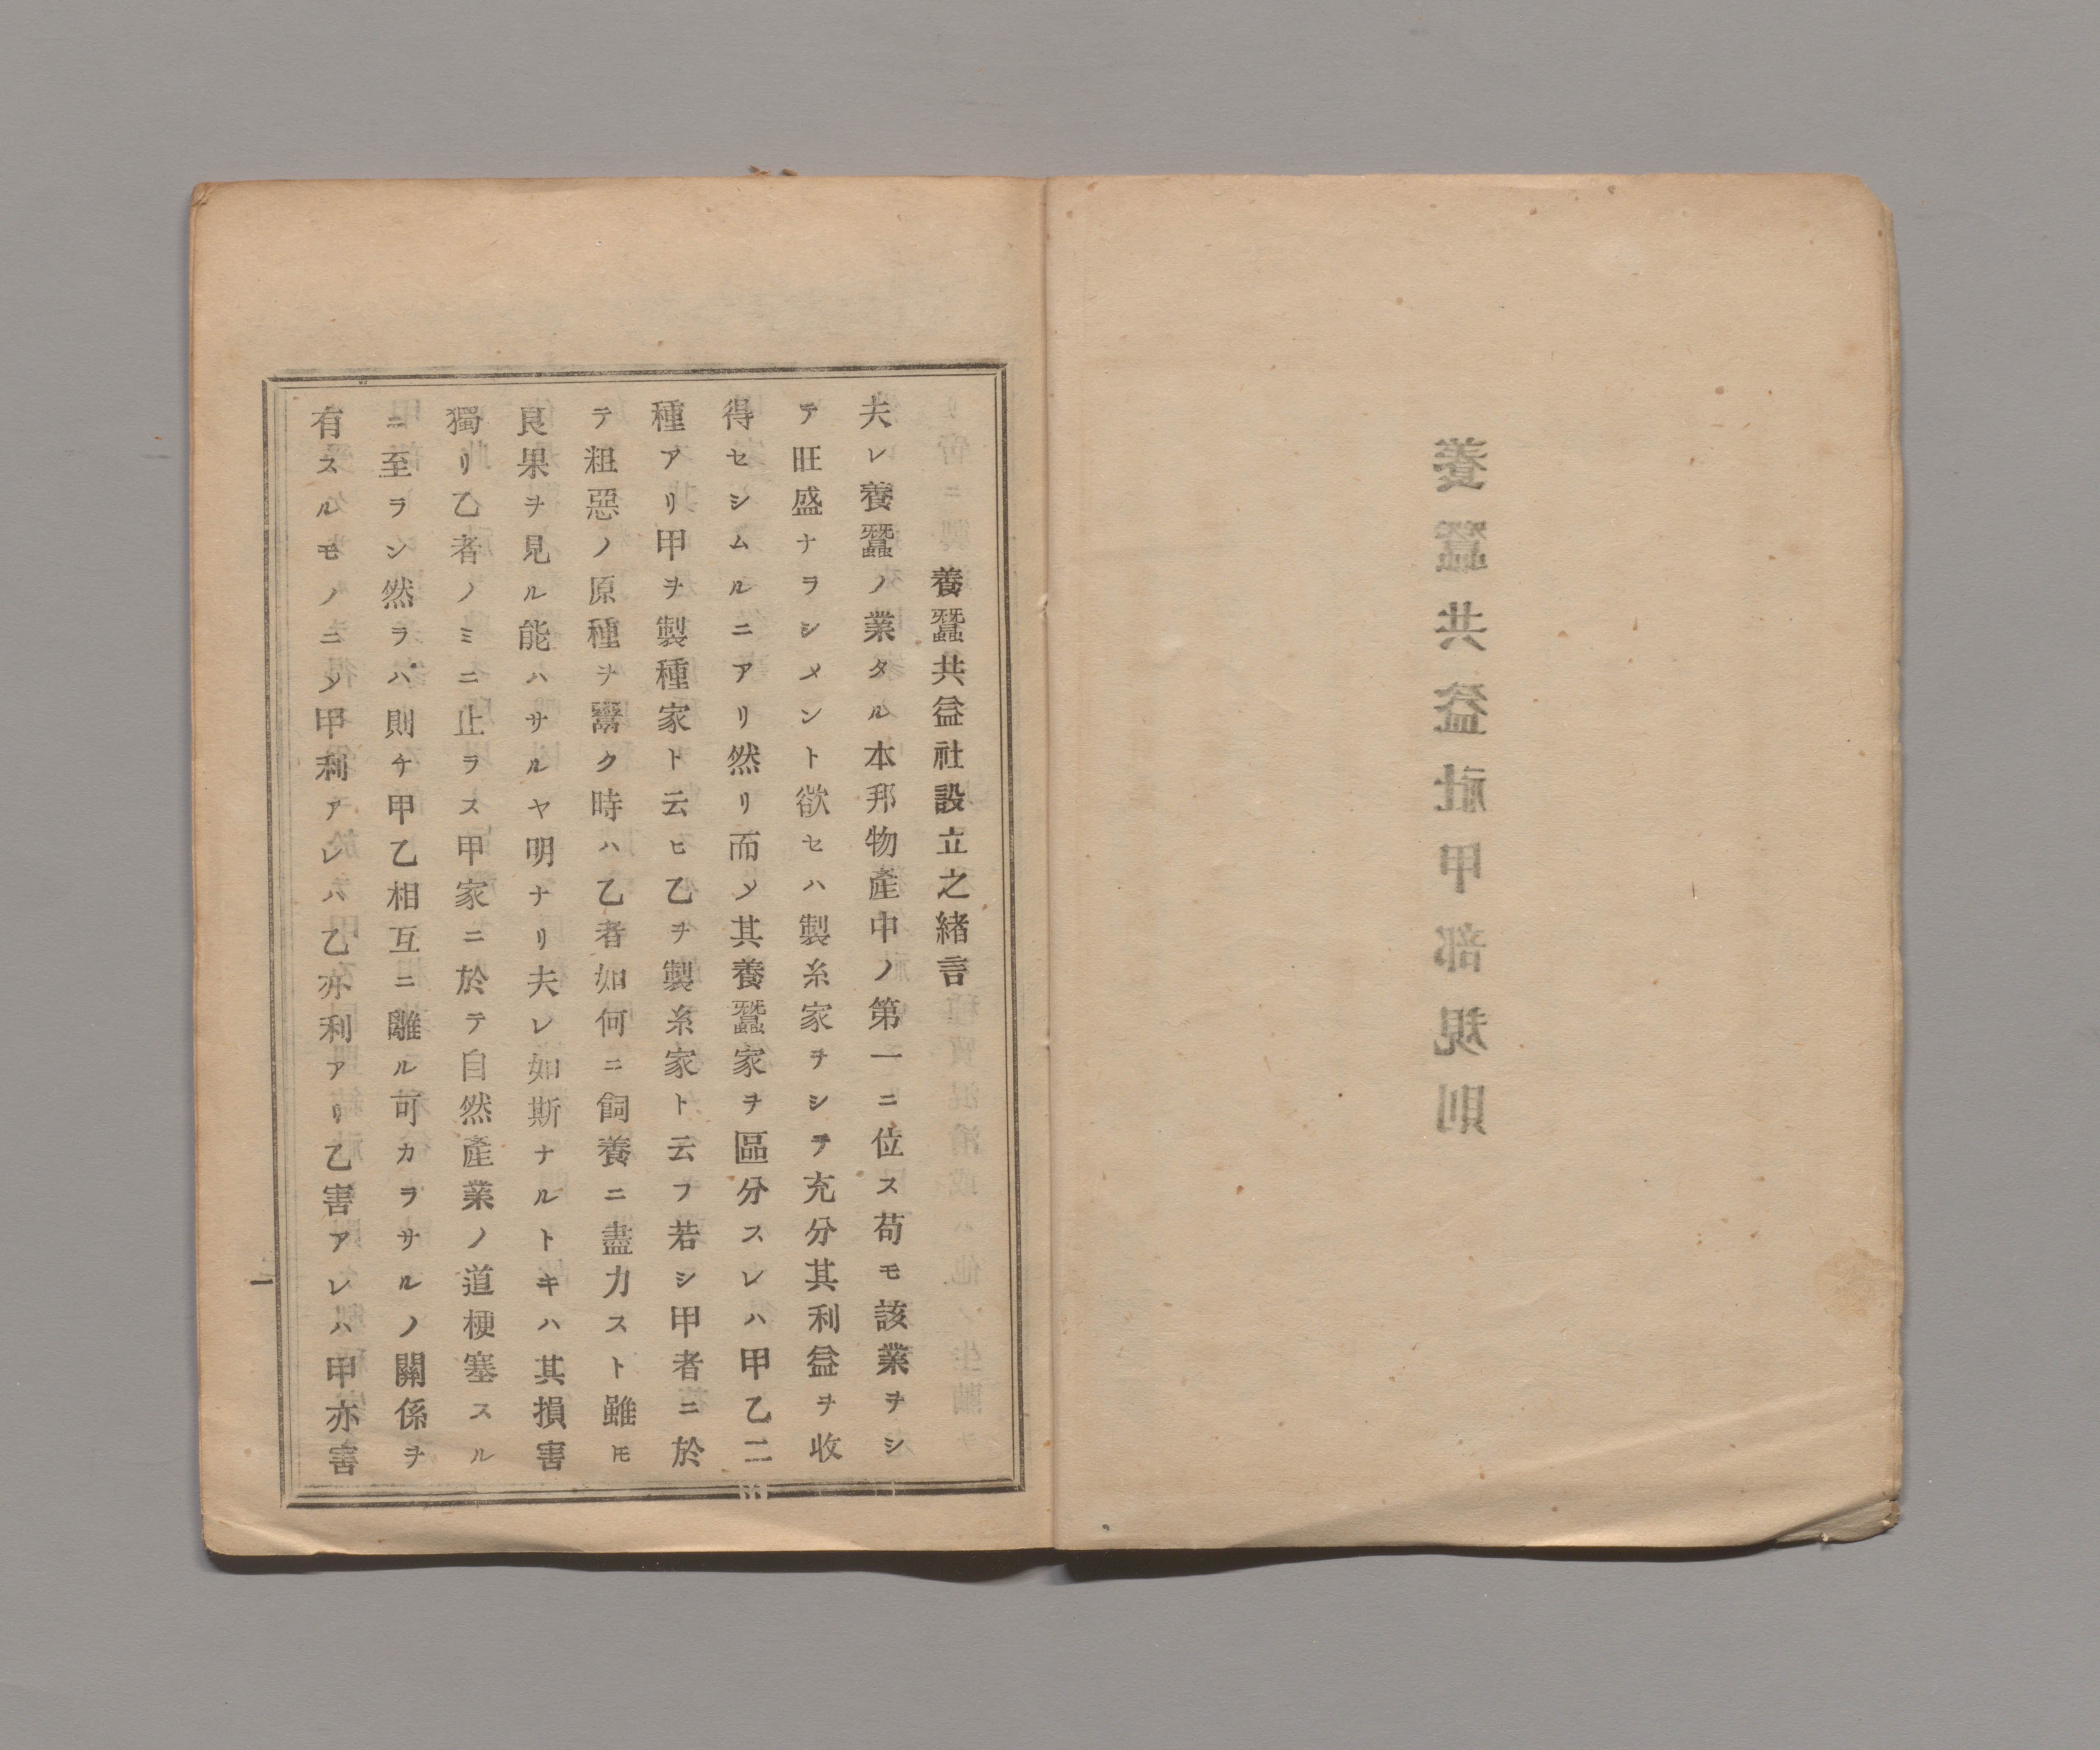 養蠶共益社甲部規則
養蠶共益社設立之緒言
夫レ養蠶ノ業タル本邦物產中ノ第一ニ位ス苟モ該業ヲシ
テ旺盛ナラシメント欲セハ製糸家ヲシヲ充分其利益ヲ收
得セシムルニアリ然リ而〆其養蠶家ヲ區分スレハ甲乙二
種アリ甲ヲ製種家ト云ヒ乙ヲ製糸家ト云フ若シ甲者ニ於
テ粗惡ノ原種ヲ鬻ク時ハ乙者如何ニ飼養ニ盡力スト雖𪜈
良果ヲ見ル能ハサルヤ明ナリ夫レ如斯ナルトキハ其損害
獨リ乙者ノミニ止ラス甲家ニ於テ自然產業ノ道梗塞スル
ニ至ラン然ラハ則チ甲乙相互ニ離ル可カラサルノ關係ヲ
有スルモノニ〆甲利アレハ乙亦利アリ乙害アレハ甲亦害
一